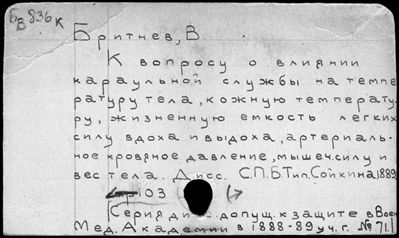 Бв 836к
Бритнев, В.
К вопросу о влиянии
караульной службы на темпе
ратуру тела, кожную температу-
ру, жизненную емкость легких
силу вдоха и выдоха, артериаль-
ное кровяное давление, мышеч. силу и
вес тела. Дисс. С.П.Б. Тип. Сойкина, 1889
103
Серия допущ. к защите в Воен
Мед. Академии в 1888-89 уч. г. № 71